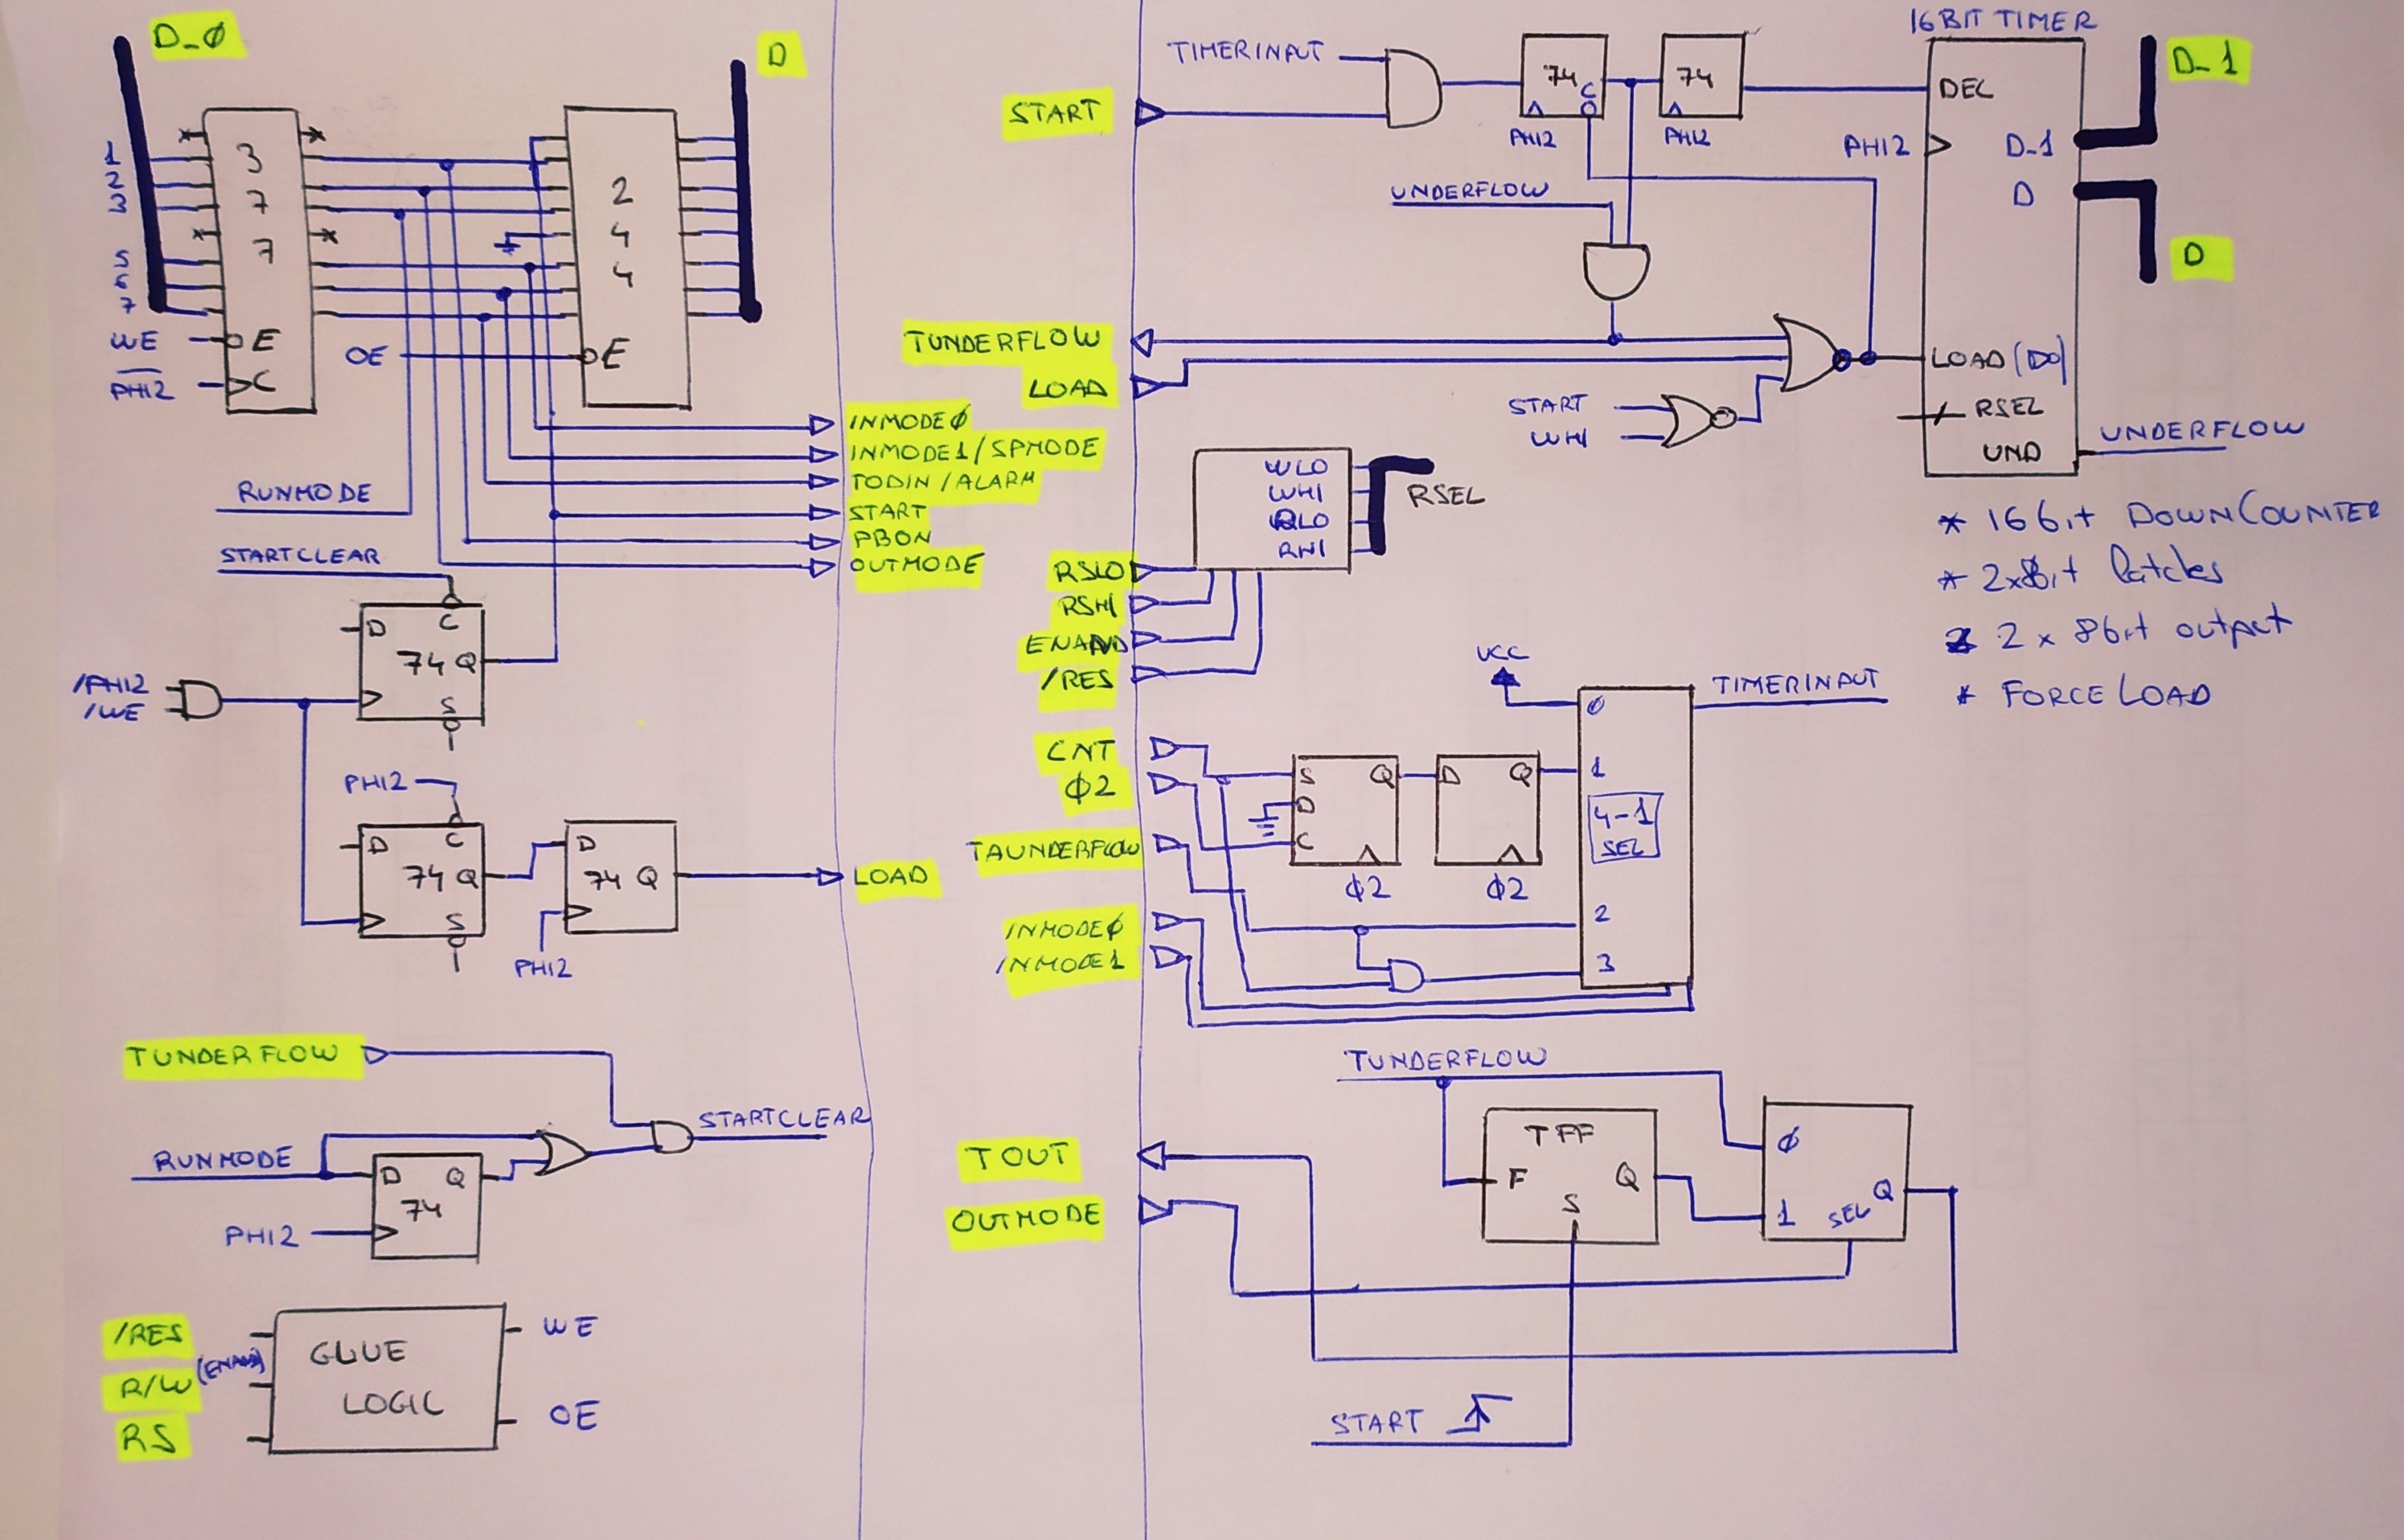 D_0
D
1
2
3
5
6
7
3
7
7
2
4
4
WE
E
PHI2
C
OE
E
INMODE0
INMODE1/SPMODE
TODIN/ALARM
START
PBON
OUTMODE
RUNMODE
STARTCLEAR
D
C
74 Q
S
/PHI2
/WE
PHI2
D
C
74 Q
S
D
74 Q
PHI2
LOAD
TUNDERFLOW
STARTCLEAR
RUNMODE
D
Q
74
PHI2
/RES
(ENAND)
R/W
RS
GLUE
LOGIC
WE
OE
16BIT TIMER
TIMERINPUT
START
74
C
PHI2
74
PHI2
DEC
PHI2
D_1
D
D_1
D
UNDERFLOW
TUNDERFLOW
LOAD
LOAD (D0)
START
WHI
RSEL
UND
UNDERFLOW
WLO
WHI
RLO
RHI
RSEL
RSLO
RSHI
/RES
* 16bit DOWNCOUNTER
* 2x8bit latches
2 x 8bit output
* FORCE LOAD
VCC
TIMERINPUT
0
1
4-1
SEL
2
3
CNT
Φ2
TAUNDERFLOW
INMODE0
INMODE1
S
Q
D
C
Φ2
D
Q
Φ2
TUNDERFLOW
TFF
F
Q
S
0
1
SEL
Q
TOUT
OUTMODE
START